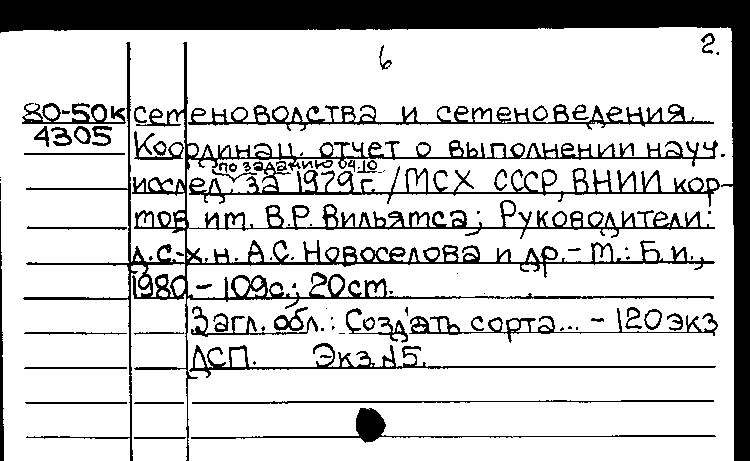 6
2.
80-50к
4305
семеноводства и семеноведения.
Координац. отчет о выполнении науч.
по заданию 04.10
исслед. за 1979 г. / МСХ СССР, ВНИИ кор-
мов им. В.Р. Вильямса; Руководители:
д.с.-х.н. А.С. Новоселова и др. - М.: Б.и.,
1980. - 109с.; 20см.
Загл. обл.: Создать сорта... - 120 экз
ДСП. Экз. №5.